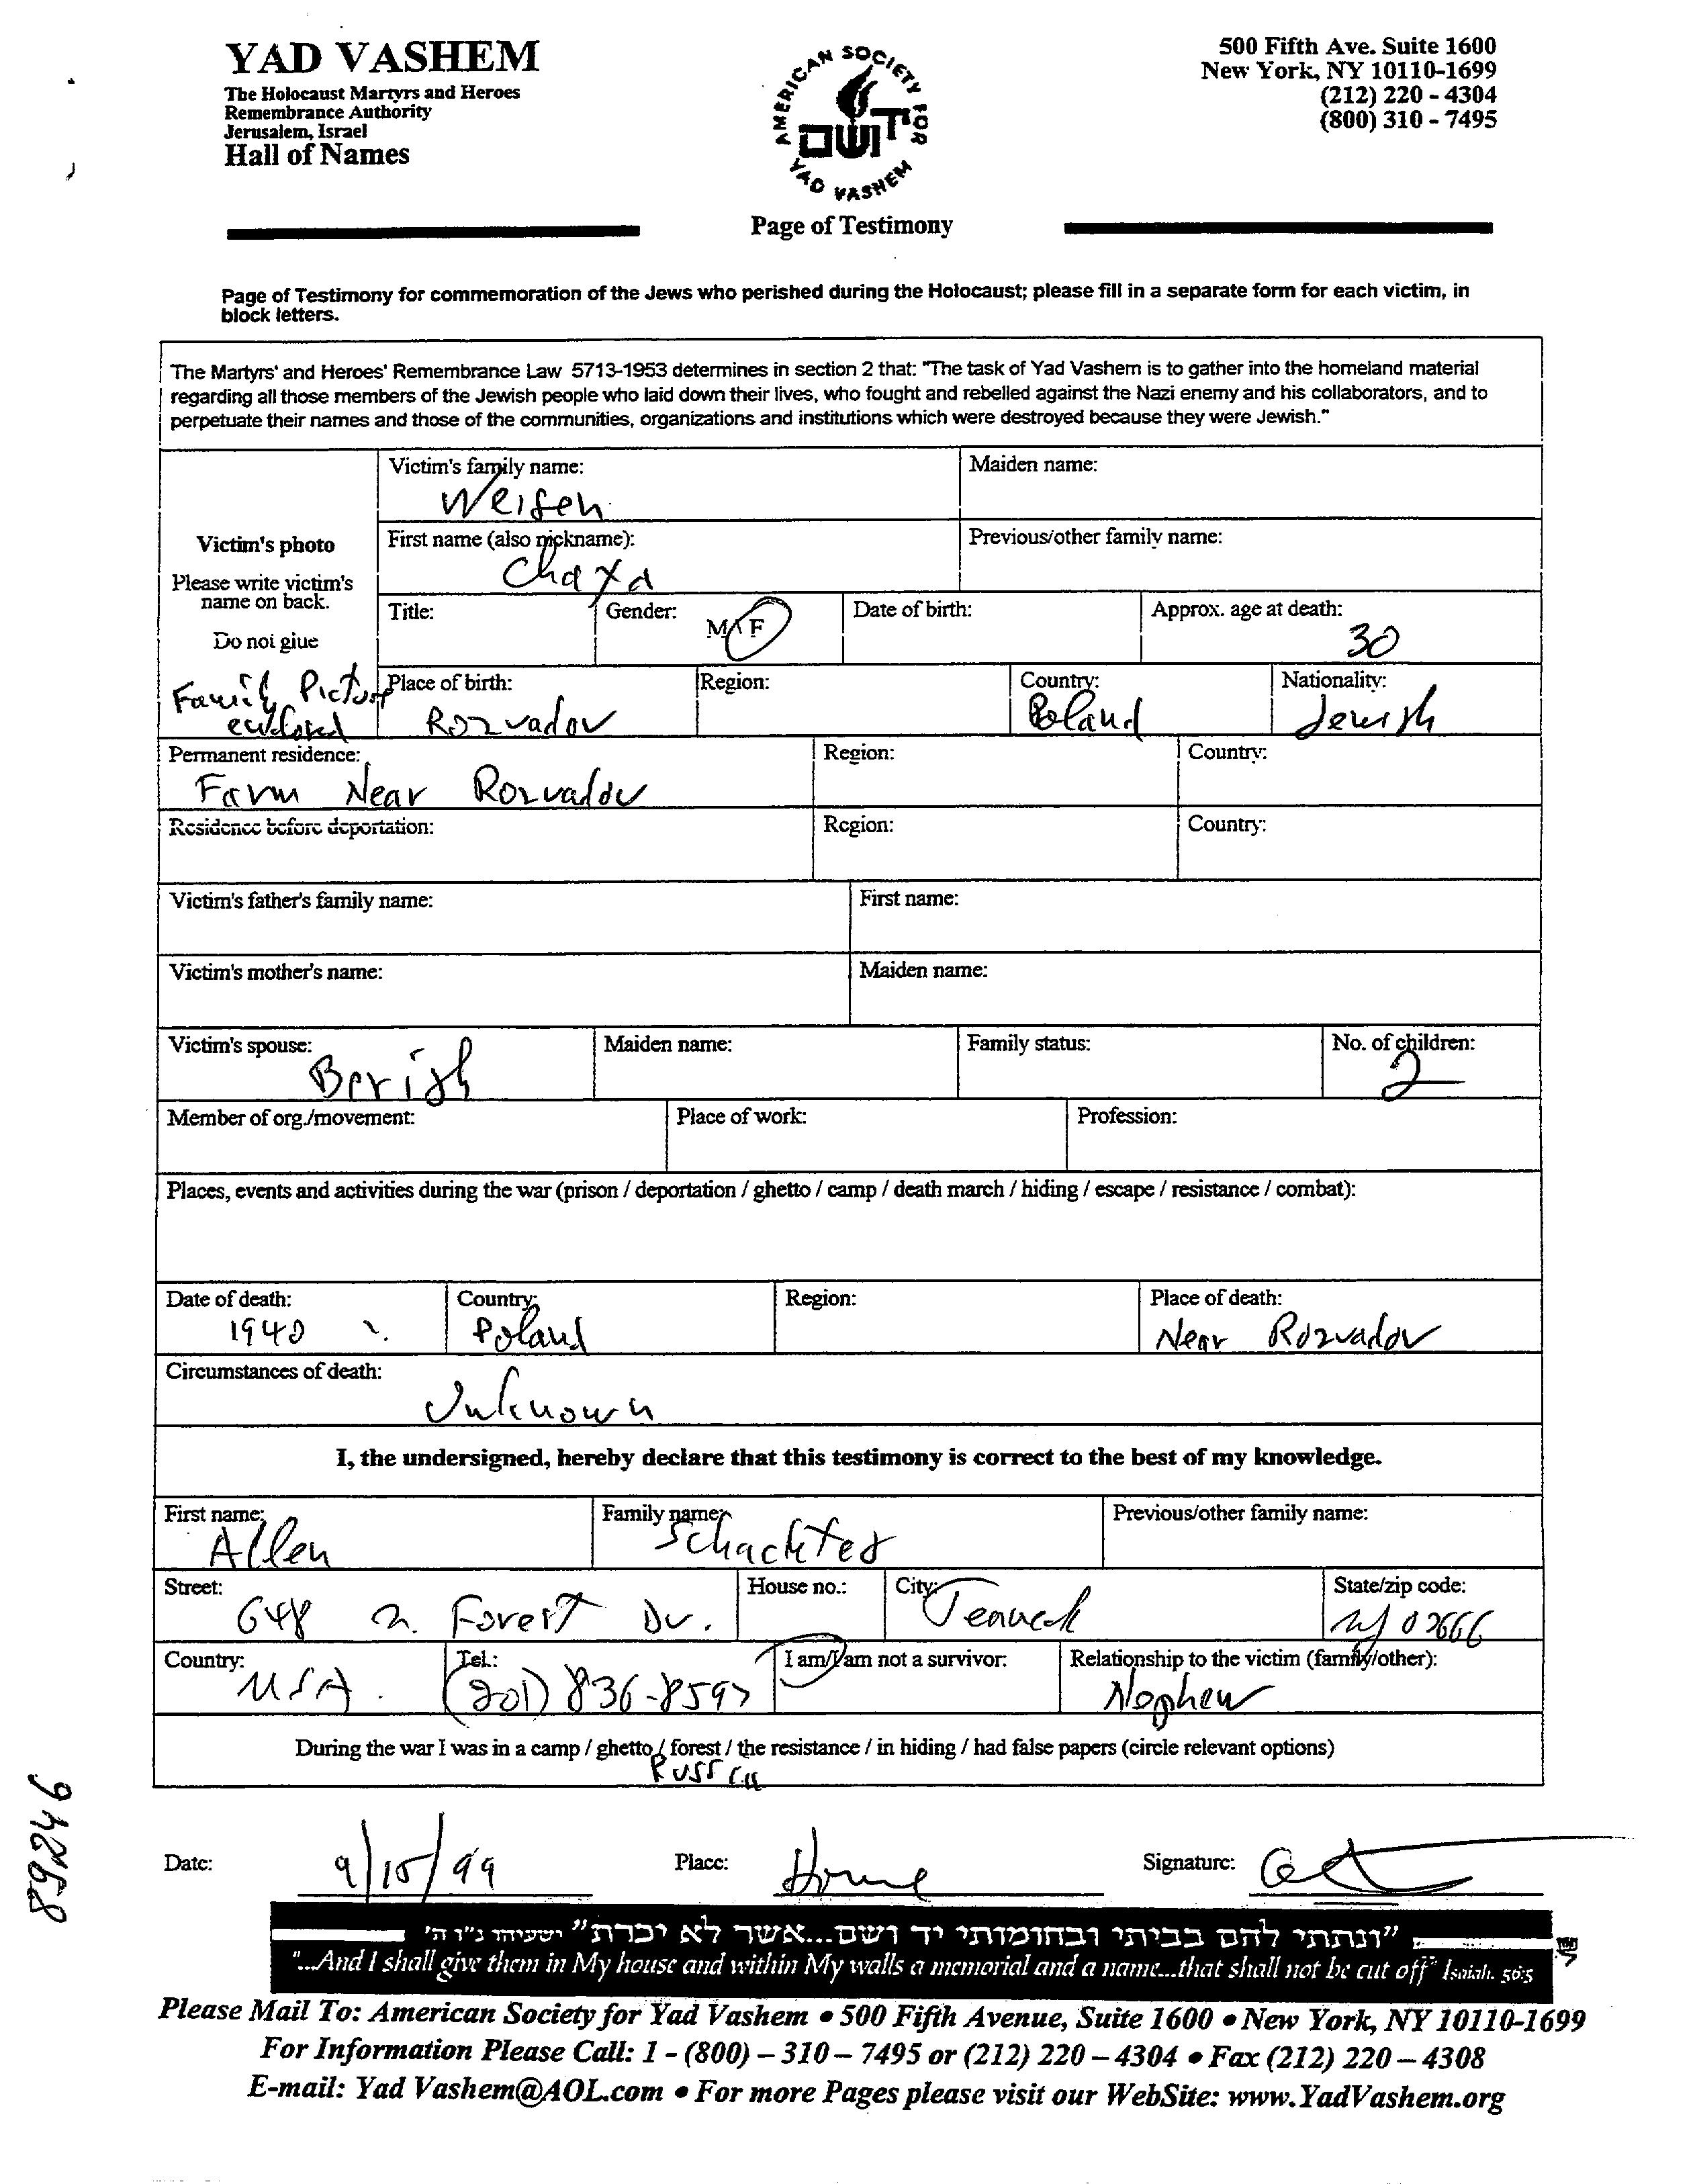 YAD VASHEM
The Holocaust Martyrs and Heroes
Remembrance Authority
Jerusalem, Israel
Hall of Names
AMERICAN SOCIETY FOR
יד ושם
YAD VASHEM
Page of Testimony
500 Fifth Ave. Suite 1600
New York, NY 10110-1699
(212) 220 - 4304
(800) 310 - 7495
Page of Testimony for commemoration of the Jews who perished during the Holocaust; please fill in a separate form for each victim, in
block letters.
The Martyrs' and Heroes' Remembrance Law 5713-1953 determines in section 2 that: "The task of Yad Vashem is to gather into the homeland material
regarding all those members of the Jewish people who laid down their lives, who fought and rebelled against the Nazi enemy and his collaborators, and to
perpetuate their names and those of the communities, organizations and institutions which were destroyed because they were Jewish."
Victim's photo
Please write victim's
name on back.
Do not glue
Family Picture
enclosed
Victim's family name:
Maiden name:
First name (also nickname):
Previous/other family name:
Title:
Gender: M / F
Date of birth:
Approx. age at death:
30
Place of birth:
Region:
Country:
Nationality:
Rozvadov
Poland
Jewish
Permanent residence:
Region:
Country:
Farm Near Rozvadov
Residence before deportation:
Region:
Country:
Victim's father's family name:
First name:
Victim's mother's name:
Maiden name:
Victim's spouse:
Maiden name:
Family status:
No. of children:
Berish
2
Member of org./movement:
Place of work:
Profession:
Places, events and activities during the war (prison / deportation / ghetto / camp / death march / hiding / escape / resistance / combat):
Date of death:
Country:
Region:
Place of death:
1940
Poland
Near Rozvadov
Circumstances of death:
Unknown
I, the undersigned, hereby declare that this testimony is correct to the best of my knowledge.
First name:
Family name:
Previous/other family name:
Allen
Schachter
Street:
House no.:
City:
State/zip code:
648 N. Forest Dr.
Teaneck
NJ 07666
Country:
Tel.:
I am/I am not a survivor:
Relationship to the victim (family/other):
USA.
(201) 836-8597
Nephew
During the war I was in a camp / ghetto / forest / the resistance / in hiding / had false papers (circle relevant options)
Russia
Date:
9/15/99
Place:
Home
Signature:
89246
"ונתתי להם בביתי ובחומותי יד ושם...אשר לא יכרת" ישעיהו נ"ו ה'
"...And I shall give them in My house and within My walls a memorial and a name...that shall not be cut off" Isaiah. 56:5
Please Mail To: American Society for Yad Vashem • 500 Fifth Avenue, Suite 1600 • New York, NY 10110-1699
For Information Please Call: 1 - (800) – 310 – 7495 or (212) 220 – 4304 • Fax (212) 220 – 4308
E-mail: Yad Vashem@AOL.com • For more Pages please visit our WebSite: www.YadVashem.org